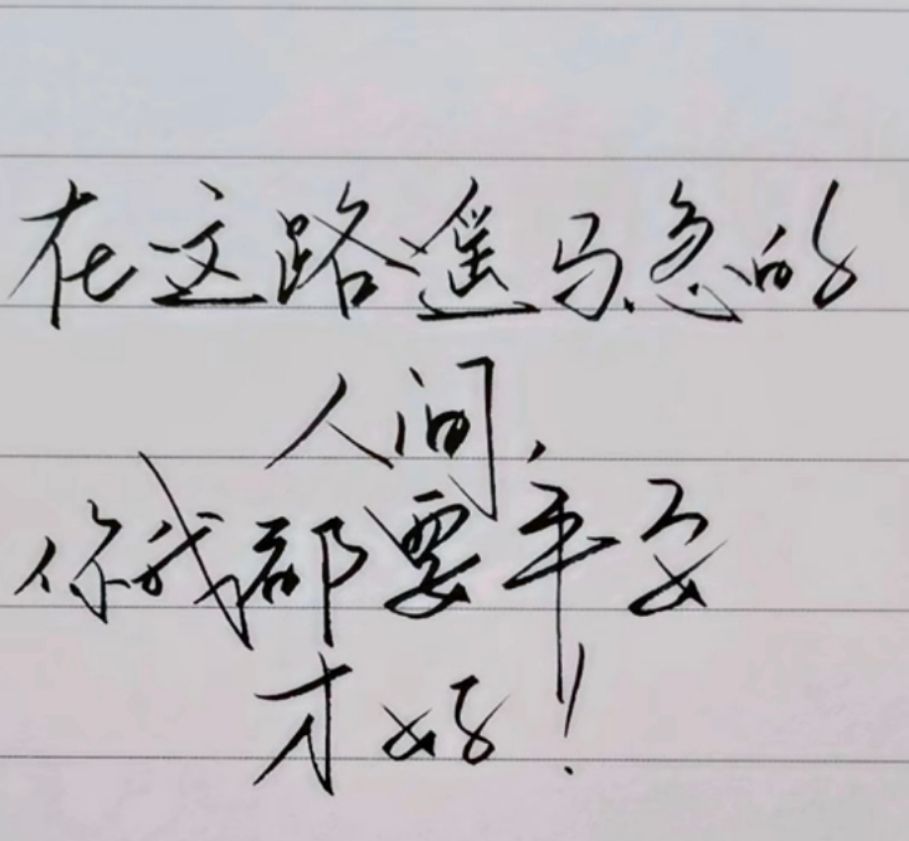 在这路遥马急的
人间,
你我都要平安
才好!